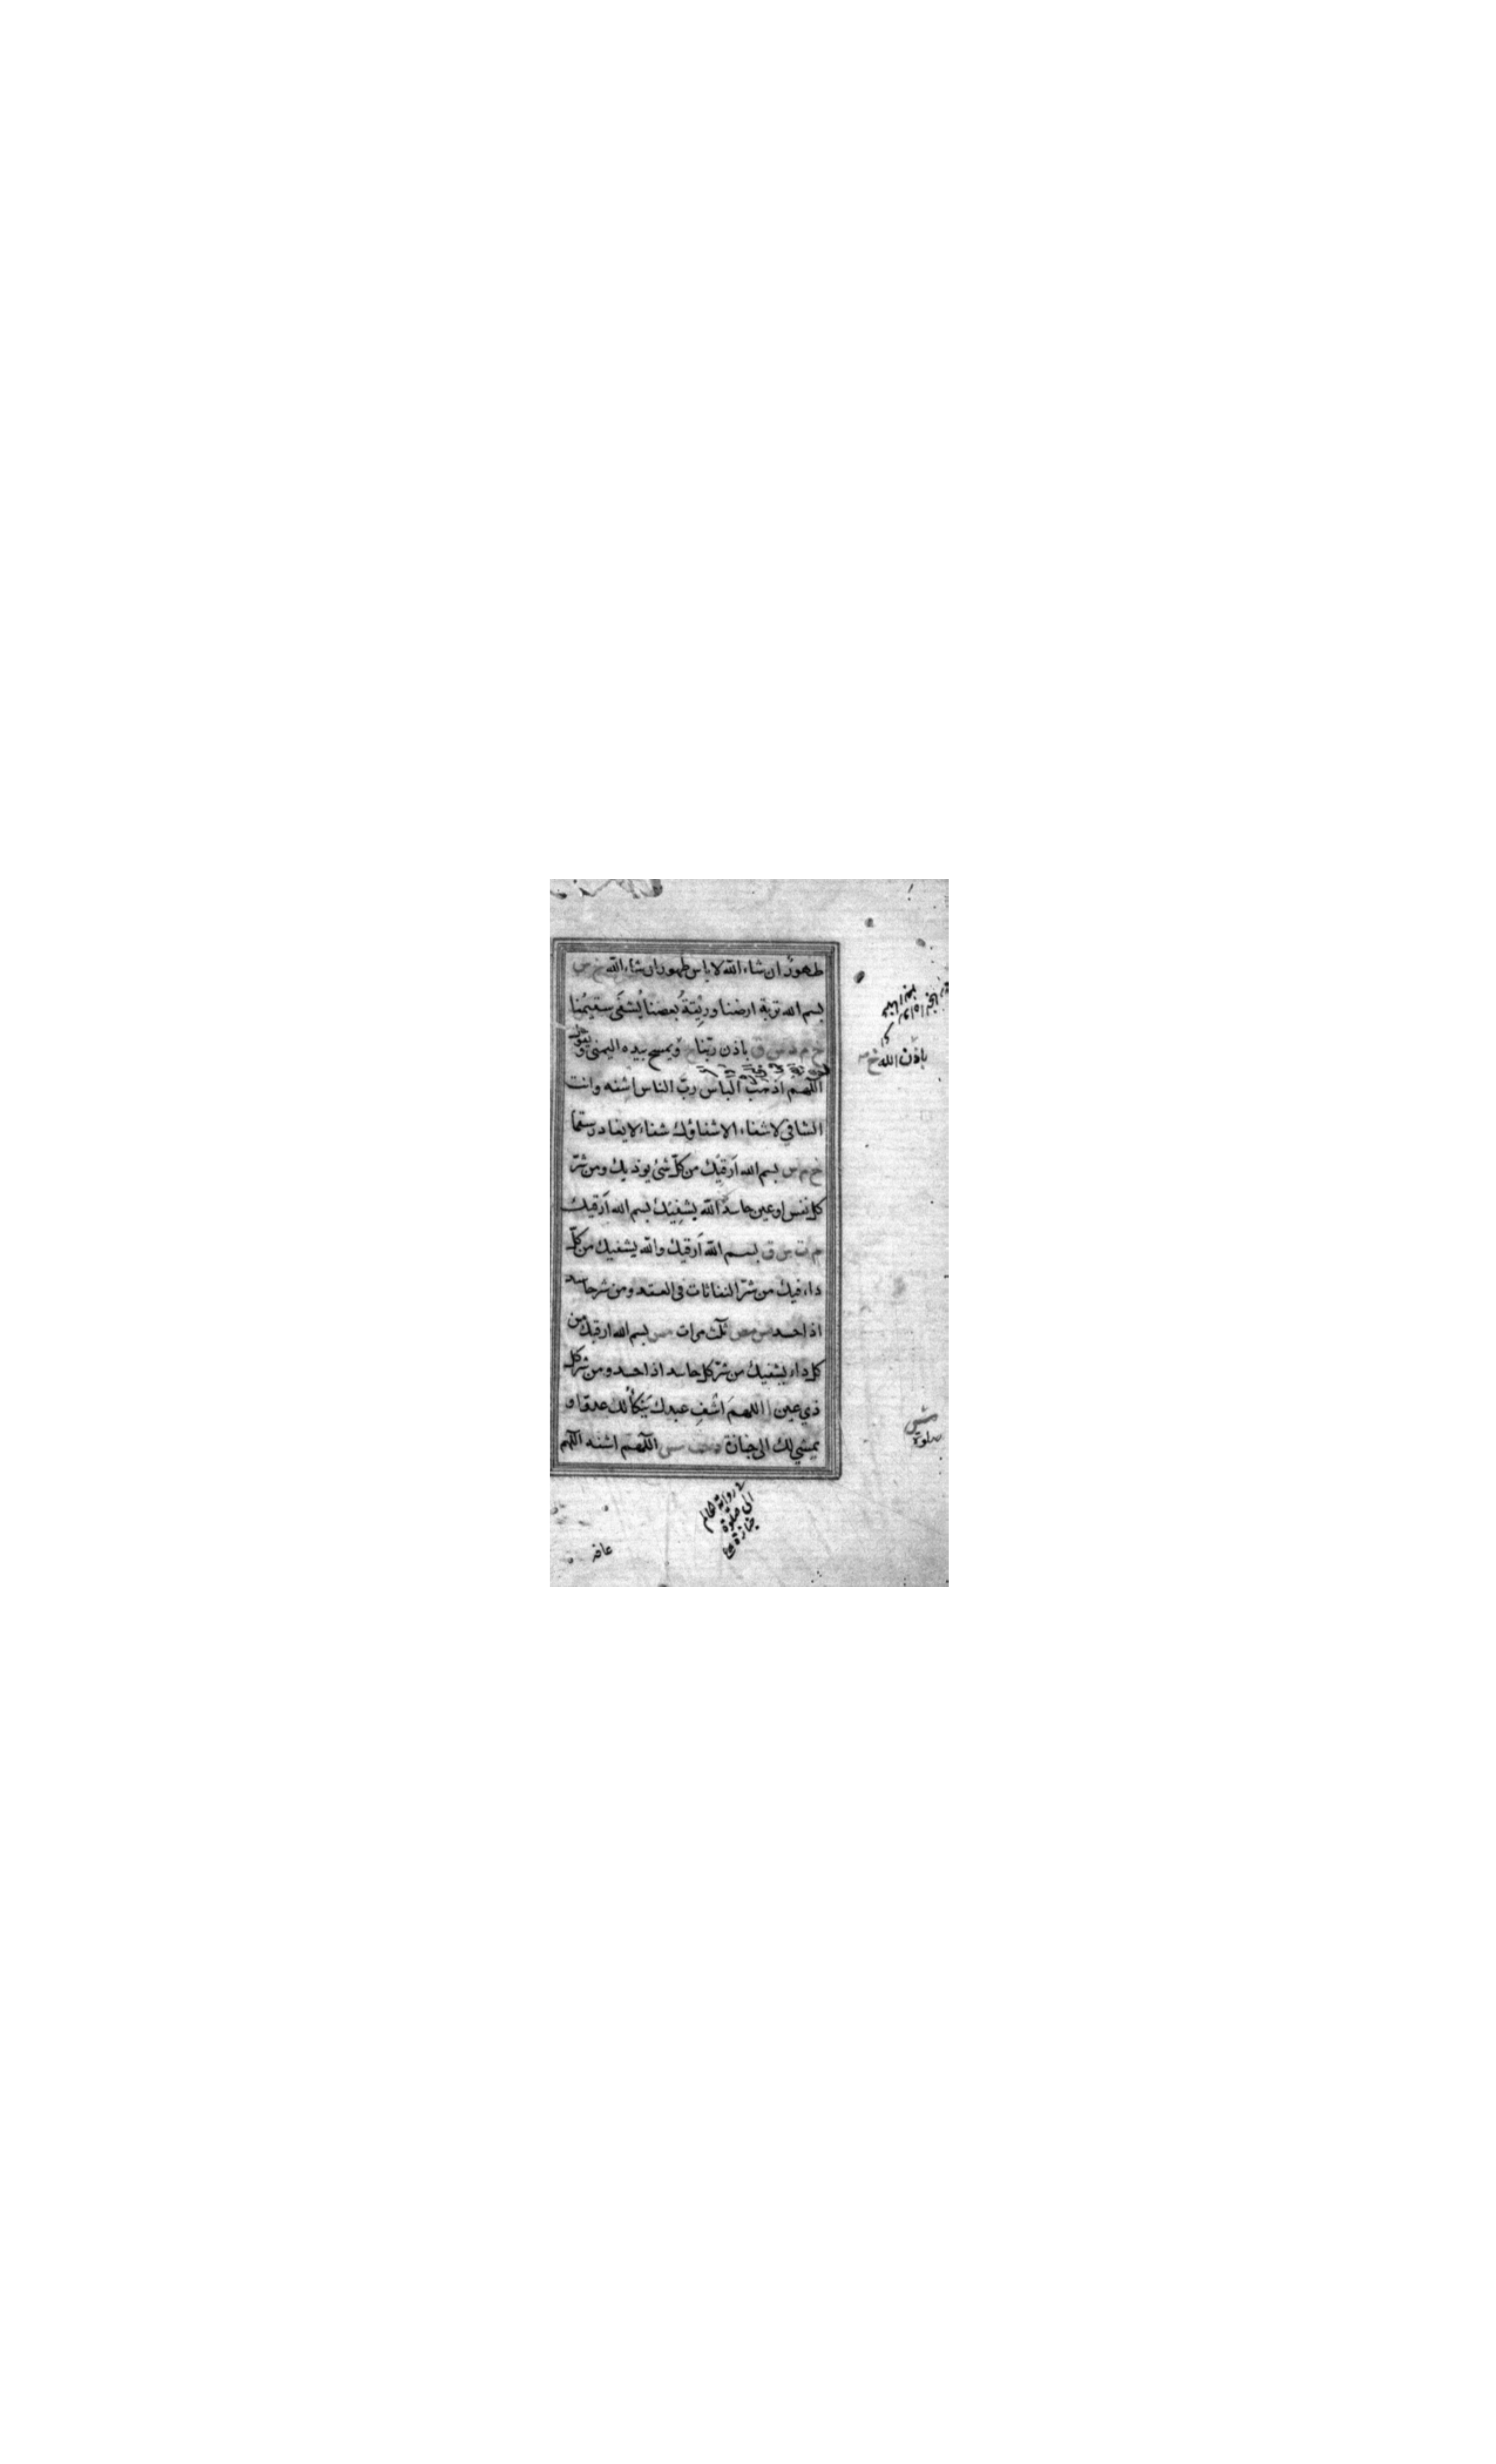 طهورٌ ان شاء الله لا باس طهور ان شاء الله خ س
بسم الله تربة ارضنا وريقة بعضنا يُشفَى سقيمُنا
خ م د س ق باذن ربّنا خ ويمسح بيده اليمنى ويقول
اللهم اذهب الباس ربَّ الناس اشفه وانت
الشافي لا شفاء الا شفاؤك شفاء لا يغادر سقما
خ م س بسم الله اَرقِيك من كلّ شئ يوذيك ومن شرّ
كل نفس او عين حاسد الله يشفِيك بسم الله اَرقيك
م ت س ق بسم الله اَرقيك والله يشفيك من كلّ
داء فيك من شرّ النفاثات في العقد ومن شر حاسد
اذا حسد س مص ثلث مرات مس بسم الله ارقيك من
كل داء يشفيك من شرّ كل حاسد اذا حسد ومن شر كل
ذي عين ا اللهمّ اشفِ عبدك يَنكأ لك عدوّا و
يمشي لك الى جنازة د حب مس اللهم اشفه اللهم
باذن الله خ
صلوة
في رواية الحاكم
الى صلوة
جنازة
عافه